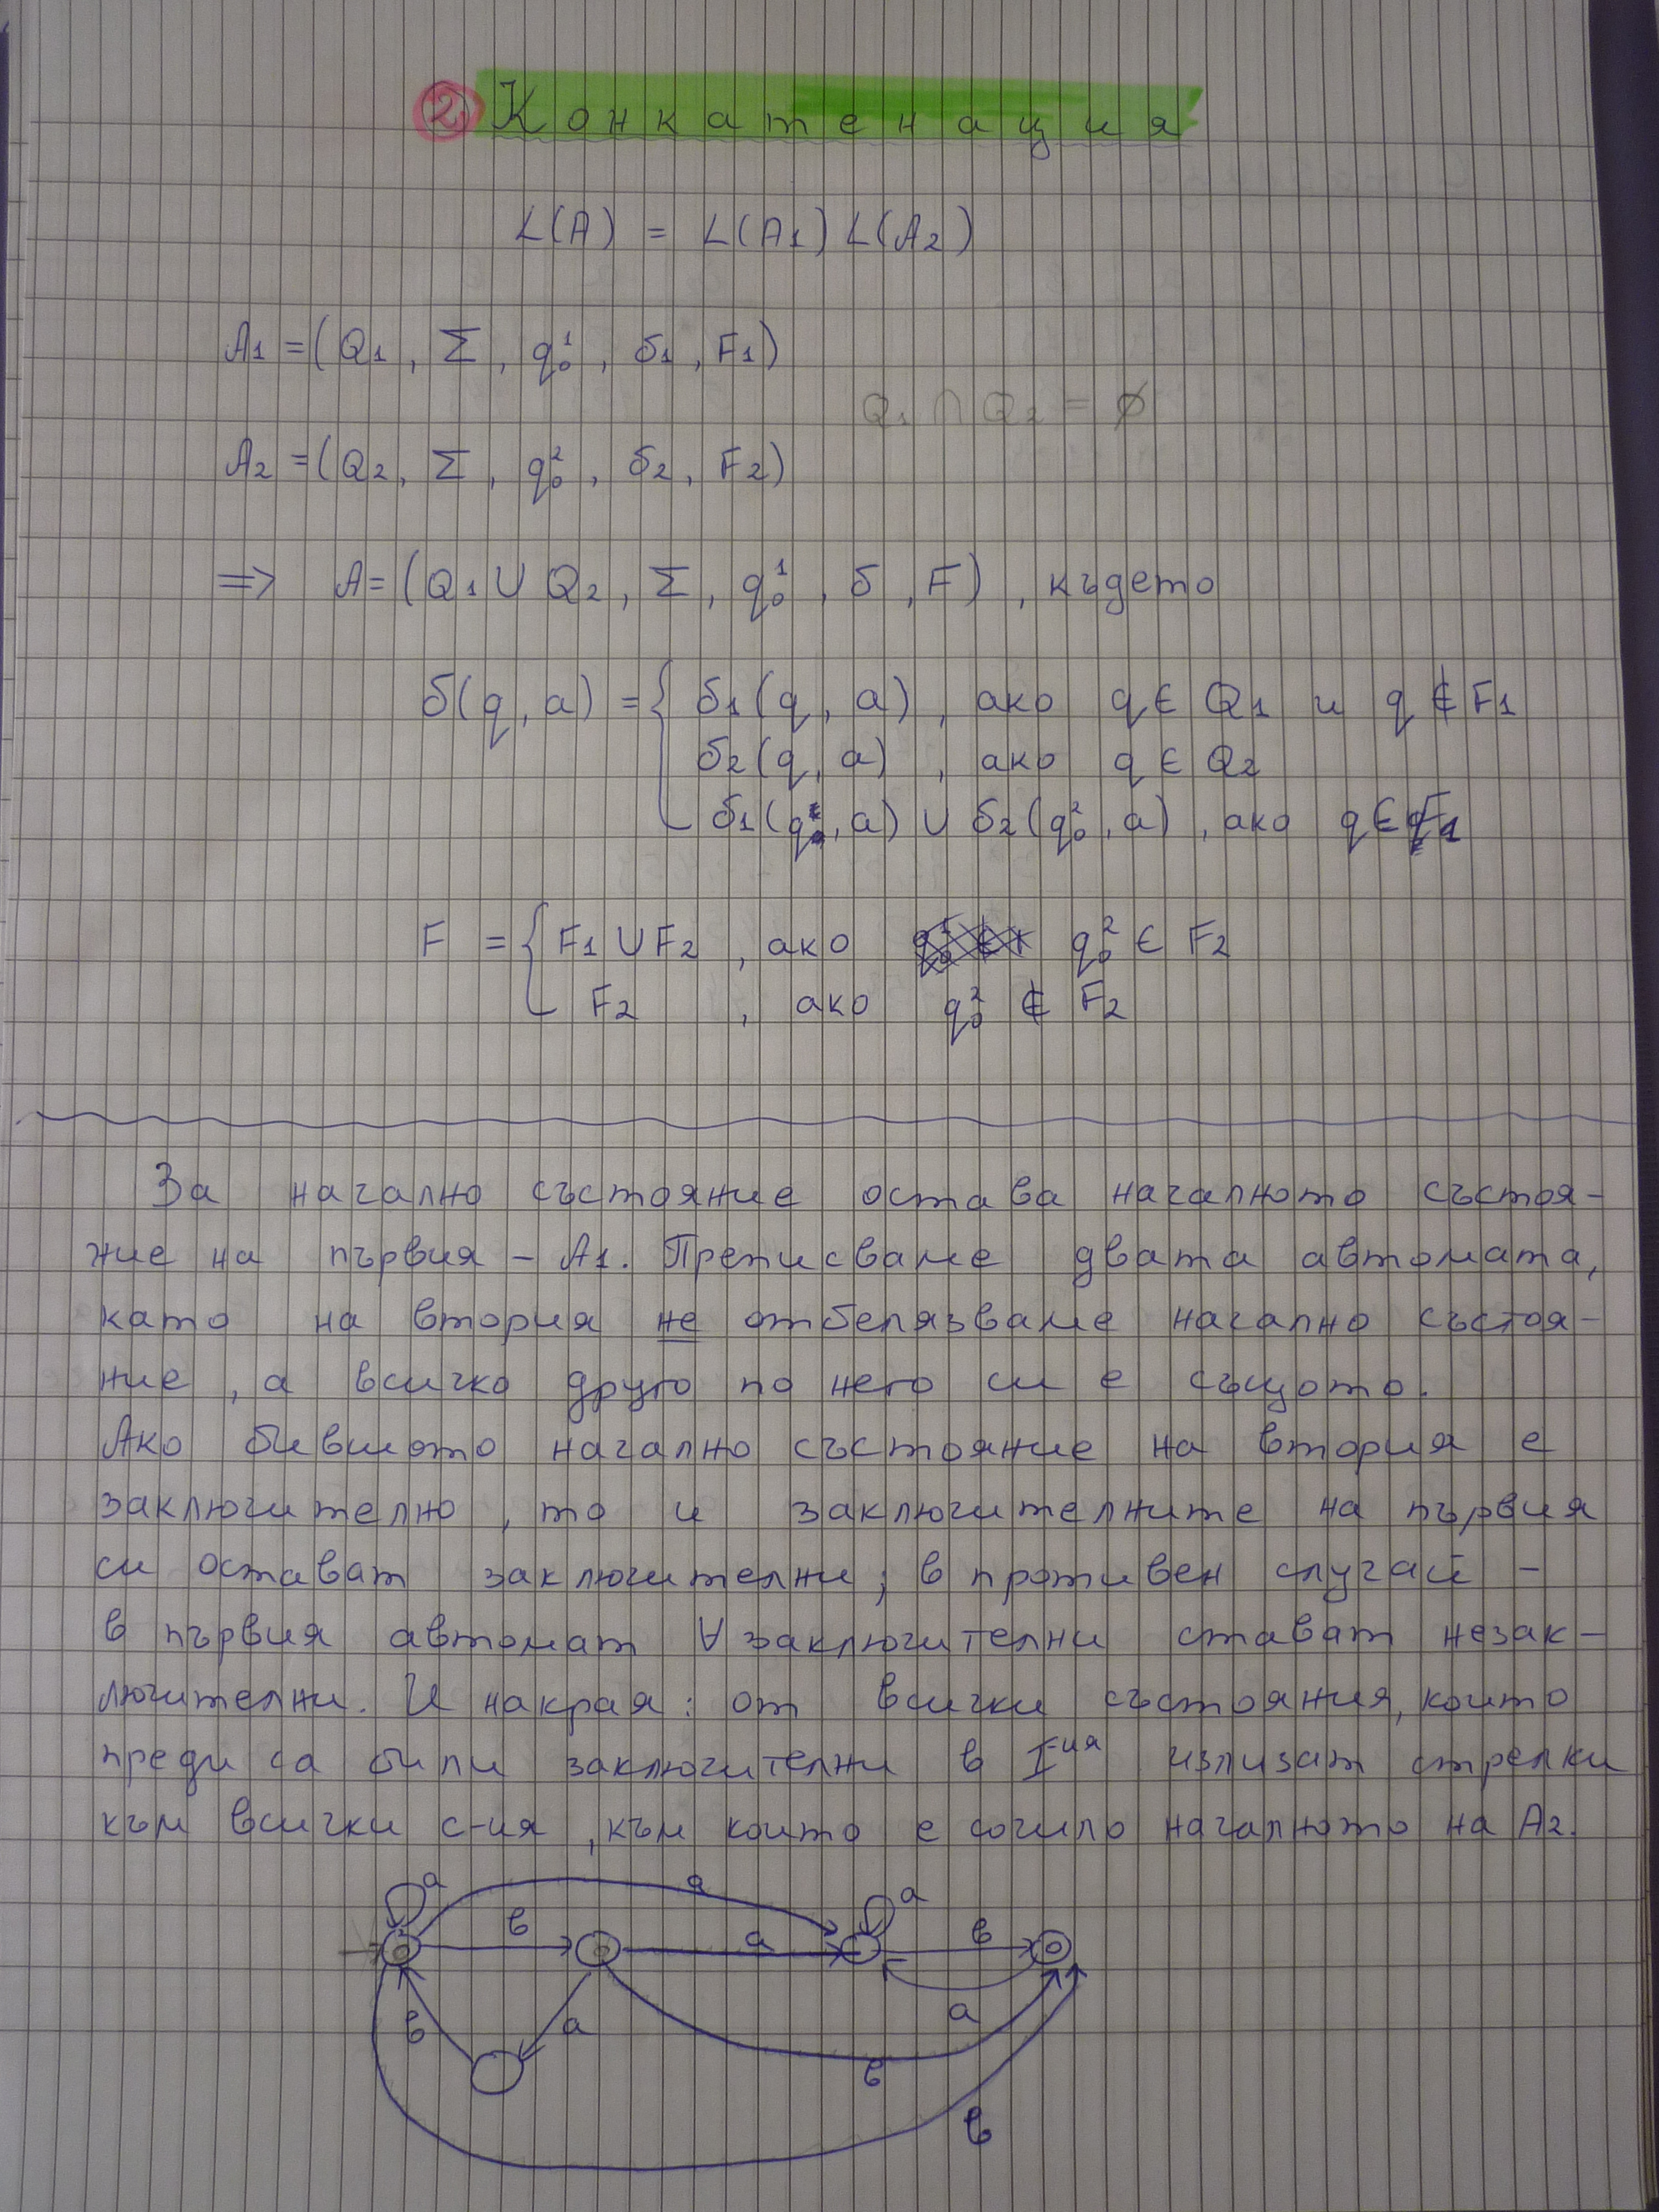 2) Конкатенация
L(A) = L(A1) L(A2)
A1 = (Q1, Σ, q₀¹, δ1, F1)
Q1 ∩ Q2 = ∅
A2 = (Q2, Σ, q₀², δ2, F2)
=> A = (Q1 ∪ Q2, Σ, q₀¹, δ, F), където
δ(q, a) = { δ1(q, a), ако q ∈ Q1 и q ∉ F1
δ2(q, a), ако q ∈ Q2
δ1(q, a) ∪ δ2(q₀², a), ако q ∈ F1
F = { F1 ∪ F2, ако q₀² ∈ F2
F2, ако q₀² ∉ F2
За начално състояние остава началното състоя-
ние на първия - A1. Преписваме двата автомата,
като на втория не отбелязваме начално състоя-
ние, а всичко друго по него си е същото.
Ако бившото начално състояние на втория е
заключително, то и заключителните на първия
си остават заключителни; в противен случай -
в първия автомат ∀ заключителни стават незак-
лючителни. И накрая: от всички състояния, които
преди са били заключителни в I-ия излизат стрелки
към всички с-ия, към които е сочило началното на A2.
a a a
в a в
в a a
в
в